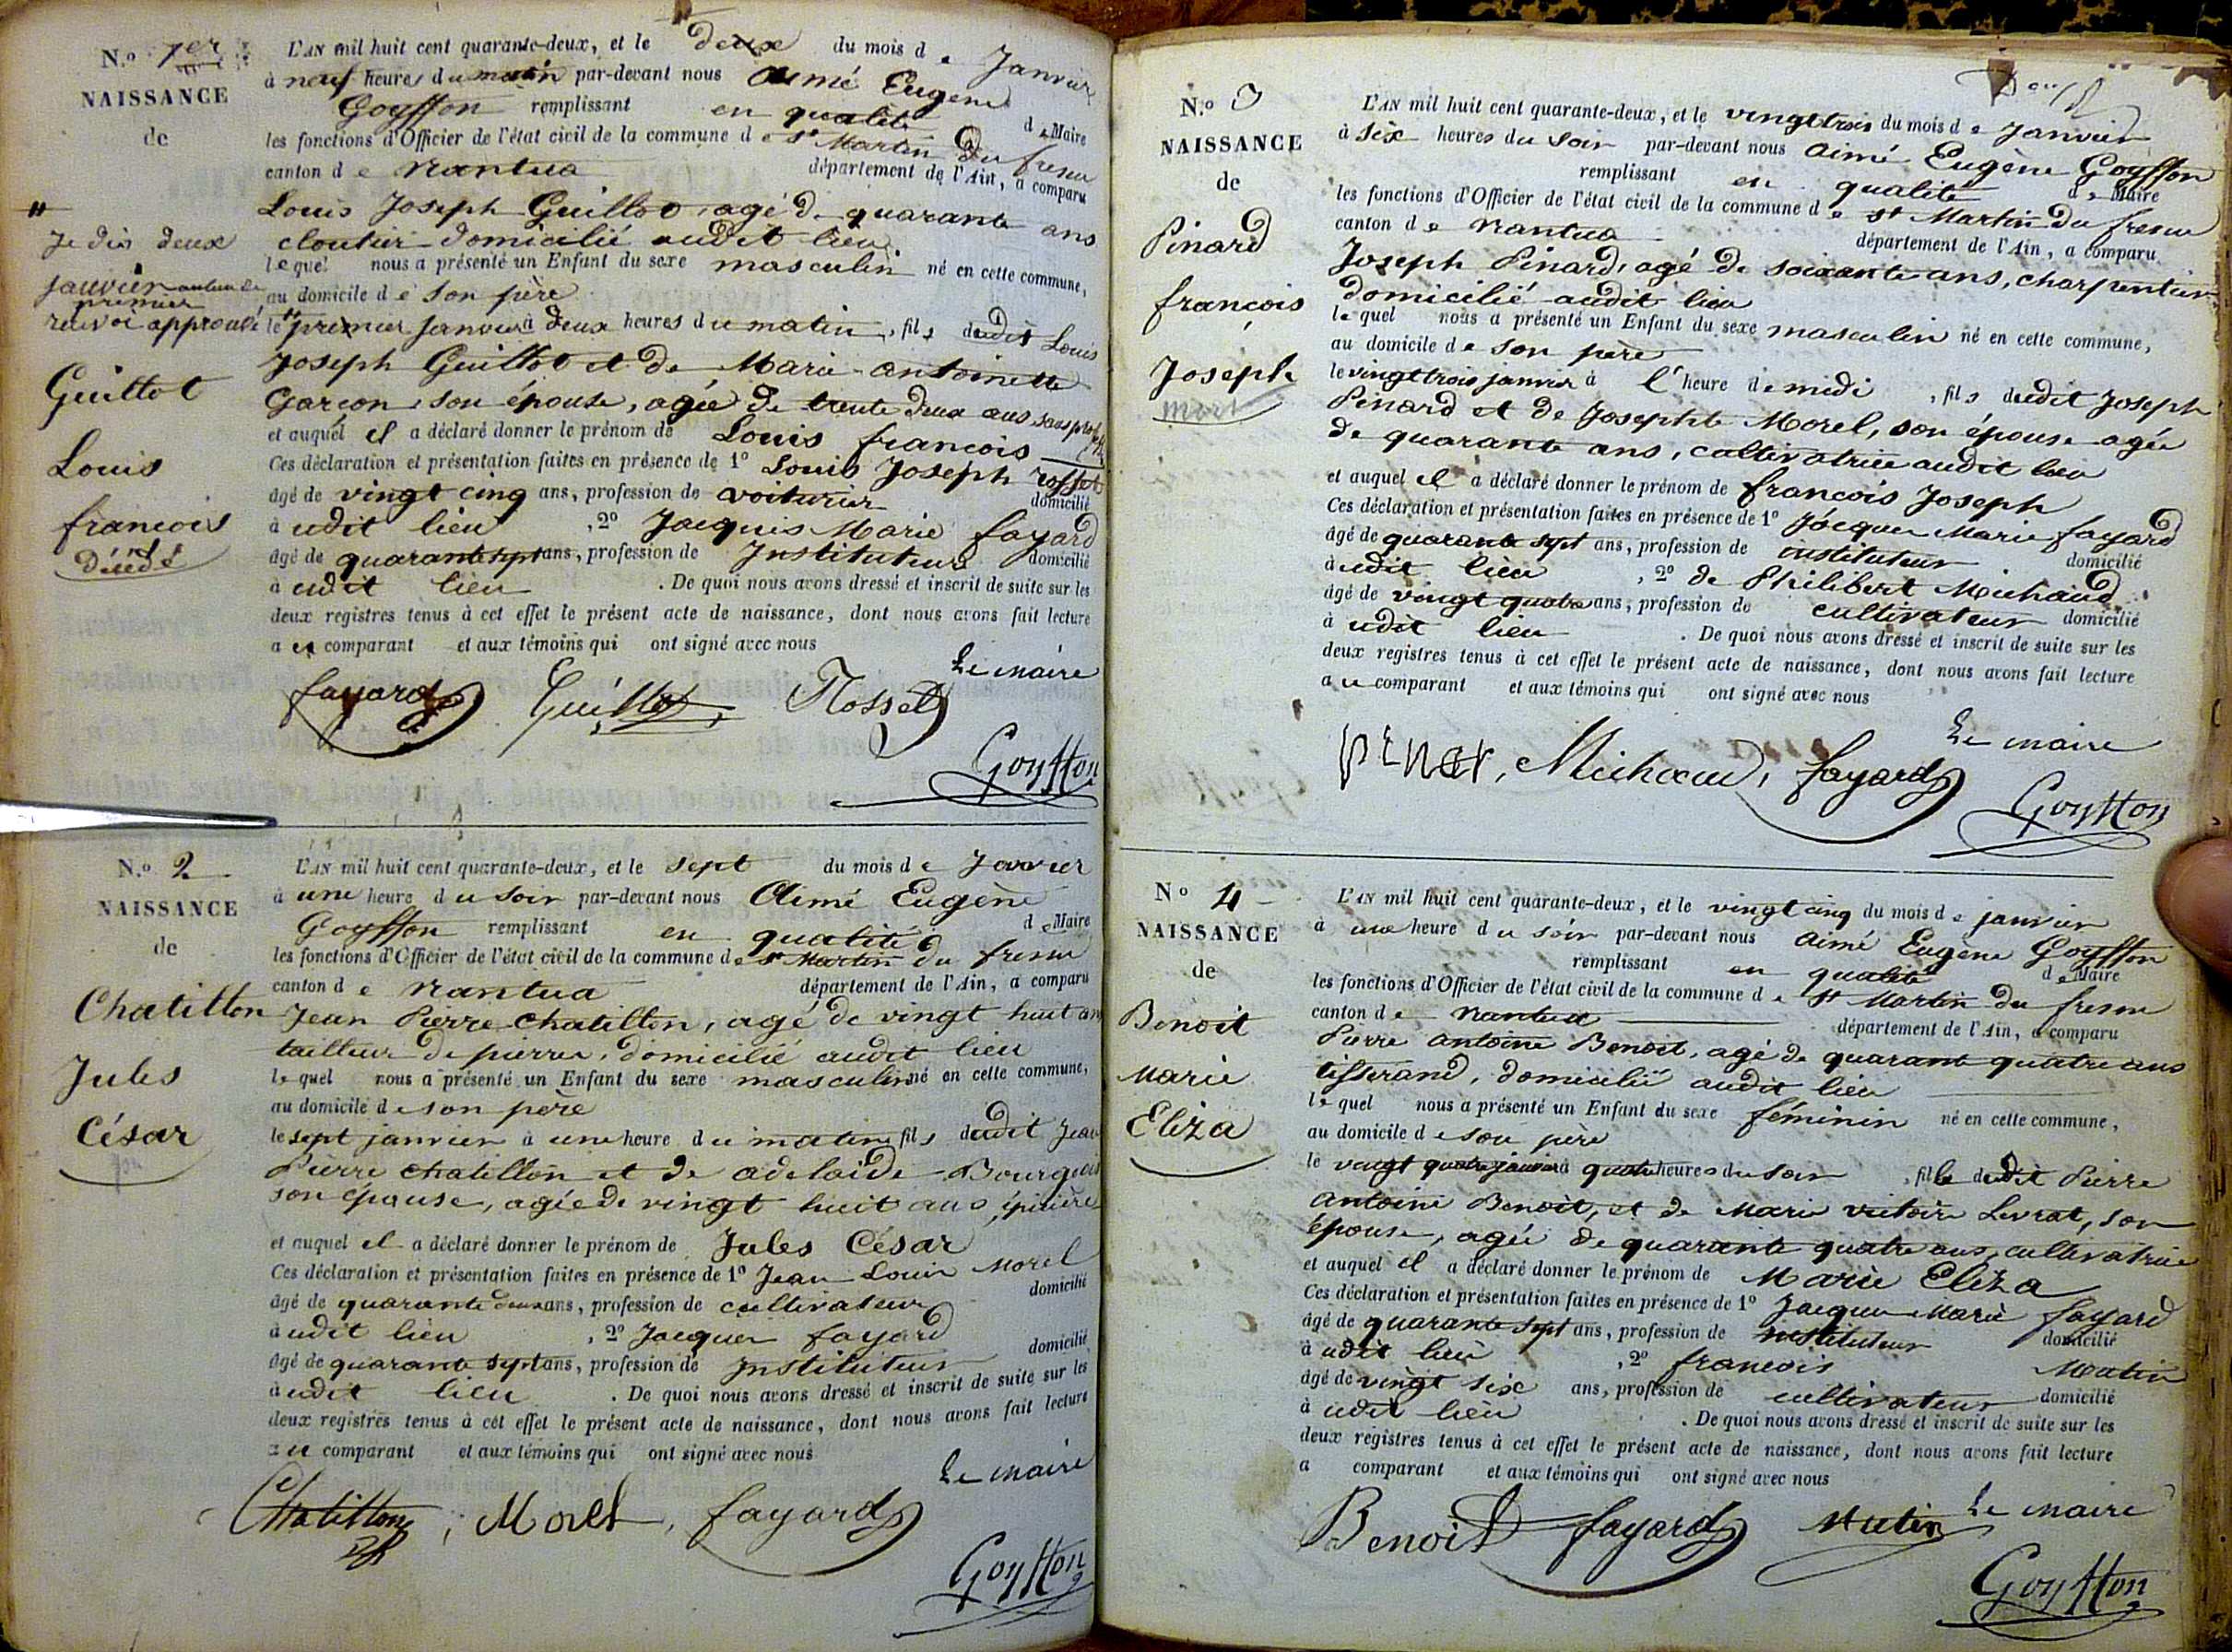 N.o 1er
NAISSANCE
de
"
Je dis deux
janvier au lieu de
premier
renvoi approuvé
Guillot
Louis
françois
décédé
L'AN mil huit cent quarante-deux, et le deux du mois de Janvier
à neuf heures du matin par-devant nous Aimé Eugène
Goyffon remplissant en qualité de Maire
les fonctions d'Officier de l'état civil de la commune de st Martin du fresne
canton de Nantua département de l'Ain, a comparu
Louis Joseph Guillot, agé de quarante ans
cloutier domicilié audit lieu.
lequel nous a présenté un Enfant du sexe masculin né en cette commune,
au domicile de son père
le " premier janvier à deux heures du matin, fils dudit Louis
Joseph Guillot et de Marie antoinette
Garcon, son épouse, agée de trente deux ans, sans prof.
et auquel il a déclaré donner le prénom de Louis françois
Ces déclaration et présentation faites en présence de 1o Louis Joseph rosset
âgé de vingt cinq ans, profession de voiturier domicilié
à udit lieu, 2o Jacques Marie fayard
âgé de quarante sept ans, profession de Instituteur domicilié
à udit lieu. De quoi nous avons dressé et inscrit de suite sur les
deux registres tenus à cet effet le présent acte de naissance, dont nous avons fait lecture
au comparant et aux témoins qui ont signé avec nous
Le maire
fayard Guillot Rosset
Goyffon
N.o 2
NAISSANCE
de
Chatillon
Jules
César
L'AN mil huit cent quarante-deux, et le sept du mois de Janvier
à une heure du soir par-devant nous Aimé Eugène
Goyffon remplissant en qualité de Maire
les fonctions d'Officier de l'état civil de la commune de st Martin du fresne
canton de Nantua département de l'Ain, a comparu
Jean Pierre Chatillon, agé de vingt huit ans
tailleur de pierres, domicilié audit lieu
lequel nous a présenté un Enfant du sexe masculin né en cette commune,
au domicile de son père
le sept janvier à une heure du matin, fils dudit Jean
Pierre Chatillon et de adelaïde Bourgeois
son épouse, agée de vingt huit ans, épicière
et auquel il a déclaré donner le prénom de Jules César
Ces déclaration et présentation faites en présence de 1o Jean Louis Morel
âgé de quarante deux ans, profession de cultivateur domicilié
à udit lieu, 2o Jacques fayard
âgé de quarante sept ans, profession de Instituteur domicilié
à udit lieu. De quoi nous avons dressé et inscrit de suite sur les
deux registres tenus à cet effet le présent acte de naissance, dont nous avons fait lecture
au comparant et aux témoins qui ont signé avec nous
Le maire
Chatillon, Morel, fayard
Goyffon
Deux
N.o 3
NAISSANCE
de
Pinard
françois
Joseph
mort
L'AN mil huit cent quarante-deux, et le vingt trois du mois de Janvier
à six heures du soir par-devant nous Aimé Eugène Goyffon
remplissant en qualité de Maire
les fonctions d'Officier de l'état civil de la commune de st Martin du fresne
canton de Nantua département de l'Ain, a comparu
Joseph Pinard, agé de soixante ans, charpentier
domicilié audit lieu
lequel nous a présenté un Enfant du sexe masculin né en cette commune,
au domicile de son père
le vingt trois janvier à l'heure de midi, fils dudit Joseph
Pinard et de Josephte Morel, son épouse agée
de quarante ans, cultivatrice audit lieu
et auquel il a déclaré donner le prénom de françois Joseph
Ces déclaration et présentation faites en présence de 1o Jacques Marie fayard
âgé de quarante sept ans, profession de instituteur domicilié
à udit lieu, 2o de Philibert Michaud
âgé de vingt quatre ans, profession de cultivateur domicilié
à udit lieu. De quoi nous avons dressé et inscrit de suite sur les
deux registres tenus à cet effet le présent acte de naissance, dont nous avons fait lecture
au comparant et aux témoins qui ont signé avec nous
Le maire
pinar, Michaud, fayard
Goyffon
No 4
NAISSANCE
de
Benoit
Marie
Eliza
L'AN mil huit cent quarante-deux, et le vingt cinq du mois de janvier
à une heure du soir par-devant nous Aimé Eugène Goyffon
remplissant en qualité de Maire
les fonctions d'Officier de l'état civil de la commune de st Martin du fresne
canton de Nantua département de l'Ain, a comparu
Pierre antoine Benoit, agé de quarante quatre ans
tisserand, domicilié audit lieu
lequel nous a présenté un Enfant du sexe féminin né en cette commune,
au domicile de son père
le vingt quatre janvier à quatre heures du soir, fille dudit Pierre
antoine Benoit, et de Marie victoire Levrat, son
épouse, agée de quarante quatre ans, cultivatrice
et auquel il a déclaré donner le prénom de Marie Eliza
Ces déclaration et présentation faites en présence de 1o Jacques Marie fayard
âgé de quarante sept ans, profession de instituteur domicilié
à udit lieu, 2o françois Mutin
âgé de vingt six ans, profession de cultivateur domicilié
à udit lieu. De quoi nous avons dressé et inscrit de suite sur les
deux registres tenus à cet effet le présent acte de naissance, dont nous avons fait lecture
a comparant et aux témoins qui ont signé avec nous
Le maire
Benoit fayard Mutin
Goyffon